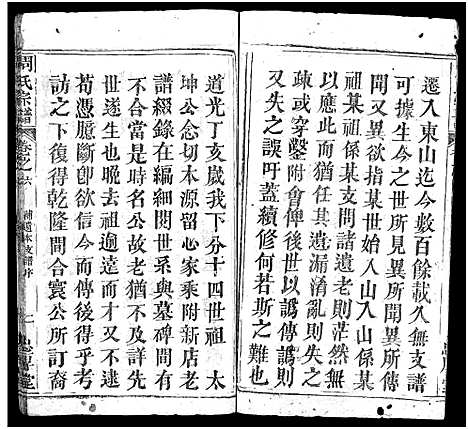 遷入東山迄今數百餘載久無支譜
可據生今之世所見異所聞異所傳
聞又異欲指某世始入山入山係某
祖某祖係某支問諸遺老則茫然無
以應此而猶任其遺漏淆亂則失之
疎或穿鑿附會俾後世以訛傳譌則
又失之誤吁蓋續修何若斯之難也
道光丁亥歲我下分十四世祖 太
坤公念切本源留心家乘附新店老
譜綴錄在編細閱世系與墓碑間有
不合當是時名公故老猶不及詳先
世遂生也晚去祖逈遠而才又不逮
苟憑臆斷卽欲信今而傳後得乎考
訪之下復得乾隆間合寰公所訂裔
周氏宗譜
卷之六
補遺本支譜序